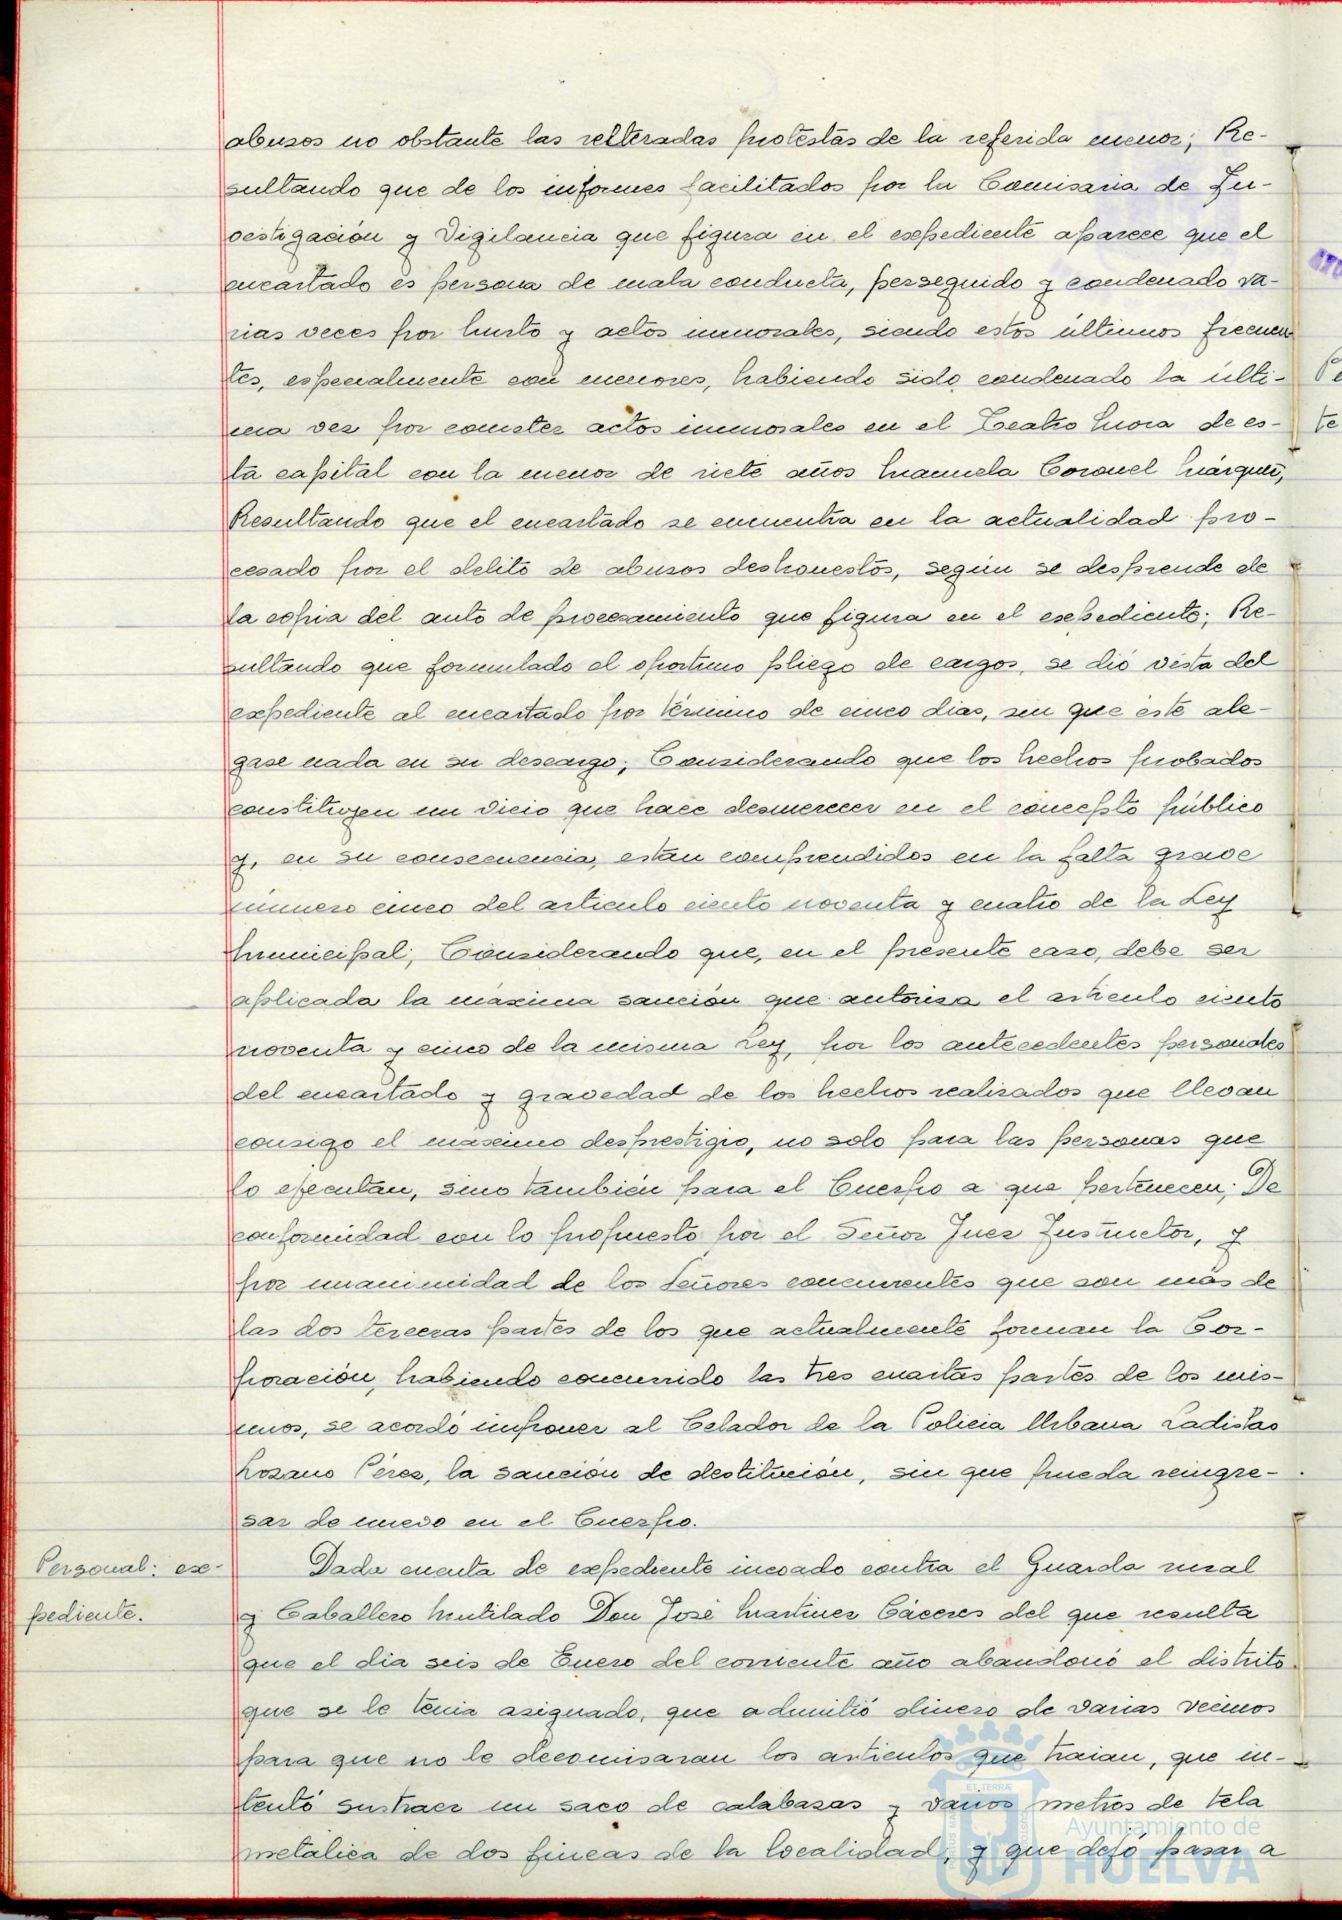 abusos no obstante las reiteradas protestas de la referida menor; Re-
sultando que de los informes facilitados por la Comisaria de In-
vestigación y Vigilancia que figura en el expediente aparece que el
encartado es persona de mala conducta, perseguido y condenado va-
rias veces por hurto y actos inmorales, siendo estos últimos frecuen
tes, especialmente con menores, habiendo sido condenado la últi-
ma vez por cometer actos inmorales en el Teatro Mora de es-
ta capital con la menor de siete años Manuela Coronel Márquez,
Resultando que el encartado se encuentra en la actualidad pro-
cesado por el delito de abusos deshonestos, según se desprende de
la copia del auto de procesamiento que figura en el expediente; Re-
sultando que formulado el oportuno pliego de cargos, se dió vista del
expediente al encartado por término de cinco dias, sin que éste ale-
gase nada en su descargo; Considerando que los hechos probados
constituyen un vicio que hace desmerecer en el concepto público
y, en su consecuencia, están comprendidos en la falta grave
número cinco del articulo ciento noventa y cuatro de la Ley
Municipal; Considerando que, en el presente caso, debe ser
aplicada la máxima sanción que autoriza el articulo ciento
noventa y cinco de la misma Ley, por los antecedentes personales
del encartado y gravedad de los hechos realizados que llevan
consigo el máximo desprestigio, no solo para las personas que
lo ejecutan, sino también para el Cuerpo a que pertenecen; De
conformidad con lo propuesto por el Señor Juez Instructor, y
por unanimidad de los Señores concurrentes que son más de
las dos terceras partes de los que actualmente forman la Cor-
poración, habiendo concurrido las tres cuartas partes de los mis-
mos, se acordó imponer al Celador de la Policia Urbana Ladislao
Lozano Pérez, la sanción de destitución, sin que pueda reingre-
sar de nuevo en el Cuerpo.
Personal: ex-
pediente.
Dada cuenta de expediente incoado contra el Guarda rural
y Caballero Mutilado Don José Martinez Cáceres del que resulta
que el dia seis de Enero del corriente año abandonó el distrito
que se le tenia asignado, que admitió dinero de varias vecinos
para que no le decomisaran los articulos que traian, que in-
tentó sustraer un saco de calabazas y varios metros de tela
metálica de dos fincas de la localidad, y que dejó pasar a
Ayuntamiento de
HUELVA